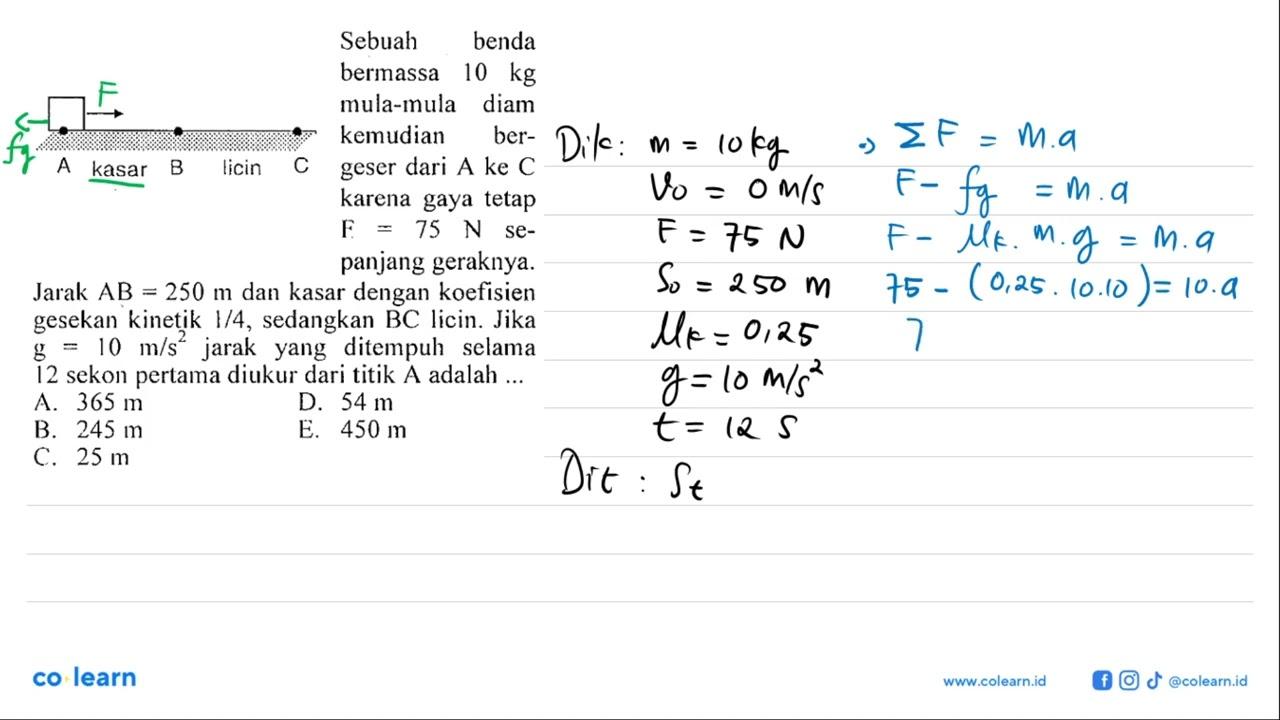 Sebuah benda
bermassa 10 kg
mula-mula diam
kemudian ber-
geser dari A ke C
karena gaya tetap
F = 75 N se-
panjang geraknya.
Jarak AB = 250 m dan kasar dengan koefisien
gesekan kinetik 1/4, sedangkan BC licin. Jika
g = 10 m/s² jarak yang ditempuh selama
12 sekon pertama diukur dari titik A adalah ...
A. 365 m
B. 245 m
C. 25 m
D. 54 m
E. 450 m
F
fg
A kasar B licin C
Dik: m = 10 kg
Vo = 0 m/s
F = 75 N
So = 250 m
μk = 0,25
g = 10 m/s²
t = 12 s
Dit : St
ΣF = m.a
F - fg = m.a
F - μk. m. g = m.a
75 - (0,25. 10.10) = 10.a
7
co learn
www.colearn.id
@colearn.id